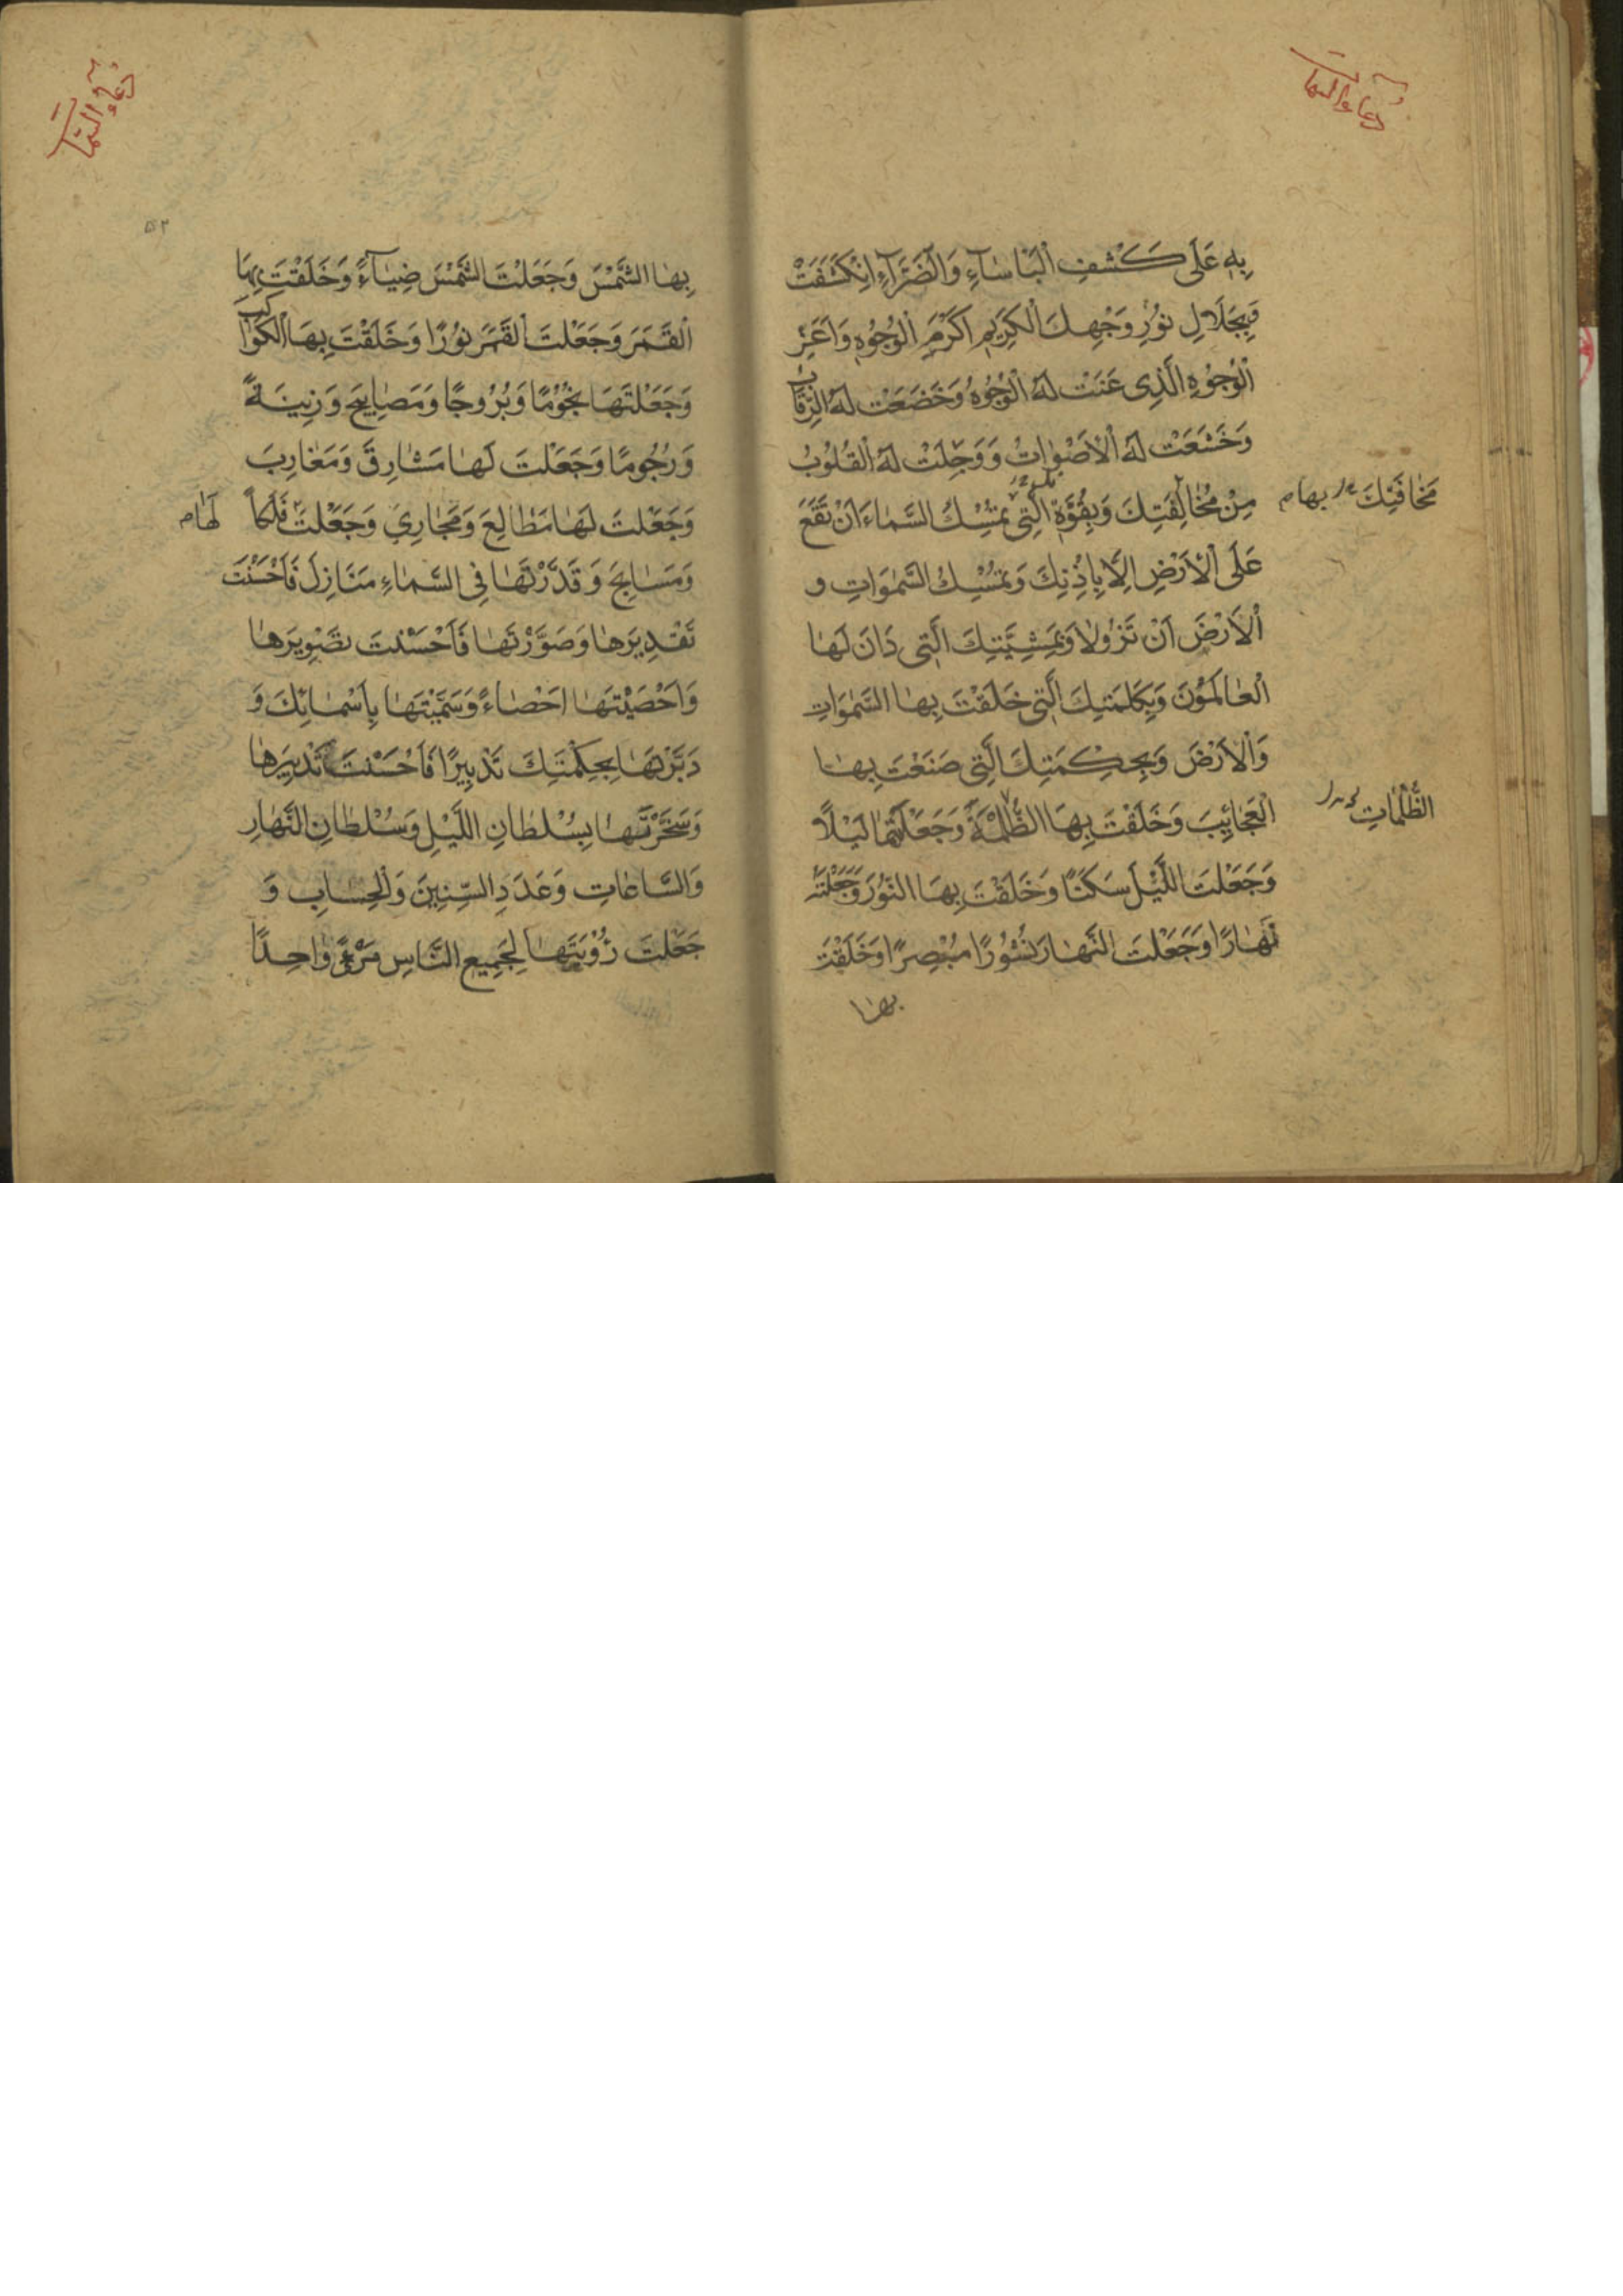 دُعَاءُ السِّمَاتِ
بِهِ عَلَى كَشْفِ الْبَأْسَآءِ وَالضَّرَّآءِ انْكَشَفَتْ
وَبِجَلَالِ نُوْرِ وَجْهِكَ الْكَرِيمِ اَكْرَمِ الْوُجُوْهِ وَاَعَزِّ
الْوُجُوْهِ الَّذِى عَنَتْ لَهُ الْوُجُوْهُ وَخَضَعَتْ لَهُ الرِّقَابُ
وَخَشَعَتْ لَهُ الْاَصْوَاتُ وَوَجِلَتْ لَهُ الْقُلُوْبُ
مِنْ مُخَالِفَتِكَ وَبِقُوَّةِ الَّتِى تُمْسِكُ السَّمَاءَ اَنْ تَقَعَ
مَخَافَتِكَ بها م
عَلَى الْاَرْضِ اِلَّا بِاِذْنِكَ وَتُمْسِكُ السَّمٰوَاتِ و
الْاَرْضَ اَنْ تَزُولَا وَبِمَشِيَّتِكَ الَّتِى دَانَ لَهَا
الْعَالَمُوْنَ وَبِكَلِمَتِكَ الَّتِى خَلَقْتَ بِهَا السَّمٰوَاتِ
وَالْاَرْضَ وَبِحِكْمَتِكَ الَّتِى صَنَعْتَ بِهَا
الْعَجَائِبَ وَخَلَقْتَ بِهَا الظُّلْمَةَ وَجَعَلْتَهَا لَيْلًا
الظُّلُمَاتِ
وَجَعَلْتَ اللَّيْلَ سَكَنًا وَخَلَقْتَ بِهَا النُّوْرَ وَجَعَلْتَهُ
نَهَارًا وَجَعَلْتَ النَّهَارَ نُشُوْرًا مُبْصِرًا وَخَلَقْتَ
بها
دُعَاءُ السِّمَاتِ
۵۲
بِهَا الشَّمْسَ وَجَعَلْتَ الشَّمْسَ ضِيَآءً وَخَلَقْتَ بِهَا
الْقَمَرَ وَجَعَلْتَ الْقَمَرَ نُوْرًا وَخَلَقْتَ بِهَا الْكَوَاكِبَ
وَجَعَلْتَهَا نُجُوْمًا وَبُرُوجًا وَمَصَابِيحَ وَزِينَةً
وَرُجُومًا وَجَعَلْتَ لَهَا مَشَارِقَ وَمَغَارِبَ
وَجَعَلْتَ لَهَا مَطَالِعَ وَمَجَارِيَ وَجَعَلْتَ فَلَكاً
لَهَا م
وَمَسَابِحَ وَقَدَّرْتَهَا فِى السَّمَاءِ مَنَازِلَ فَاَحْسَنْتَ
تَقْدِيرَهَا وَصَوَّرْتَهَا فَاَحْسَنْتَ تَصْوِيرَهَا
وَاَحْصَيْتَهَا اِحْصَاءً وَسَمَّيْتَهَا بِاَسْمَائِكَ وَ
دَبَّرْتَهَا بِحِكْمَتِكَ تَدْبِيرًا فَاَحْسَنْتَ تَدْبِيرَهَا
وَسَخَّرْتَهَا بِسُلْطَانِ اللَّيْلِ وَسُلْطَانِ النَّهَارِ
وَالسَّاعَاتِ وَعَدَدِ السِّنِينَ وَالْحِسَابِ وَ
جَعَلْتَ رُؤْيَتَهَا لِجَمِيعِ النَّاسِ مَرْءً وَاحِدًا